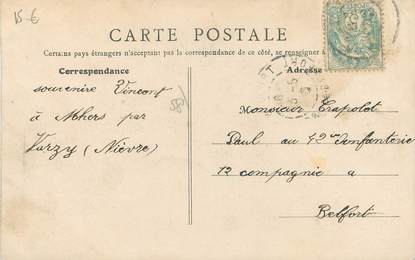 15-€
CARTE POSTALE
Certains pays étrangers n'acceptant pas la correspondance de ce côté, se renseigner à
Correspondance
Adresse
souvenire Vincent
à Mhers par
Varzy (Nièvre)
58
Monsieur Trapolot
Paul au 42e d'enfanterie
12 compagnie a
Belfort